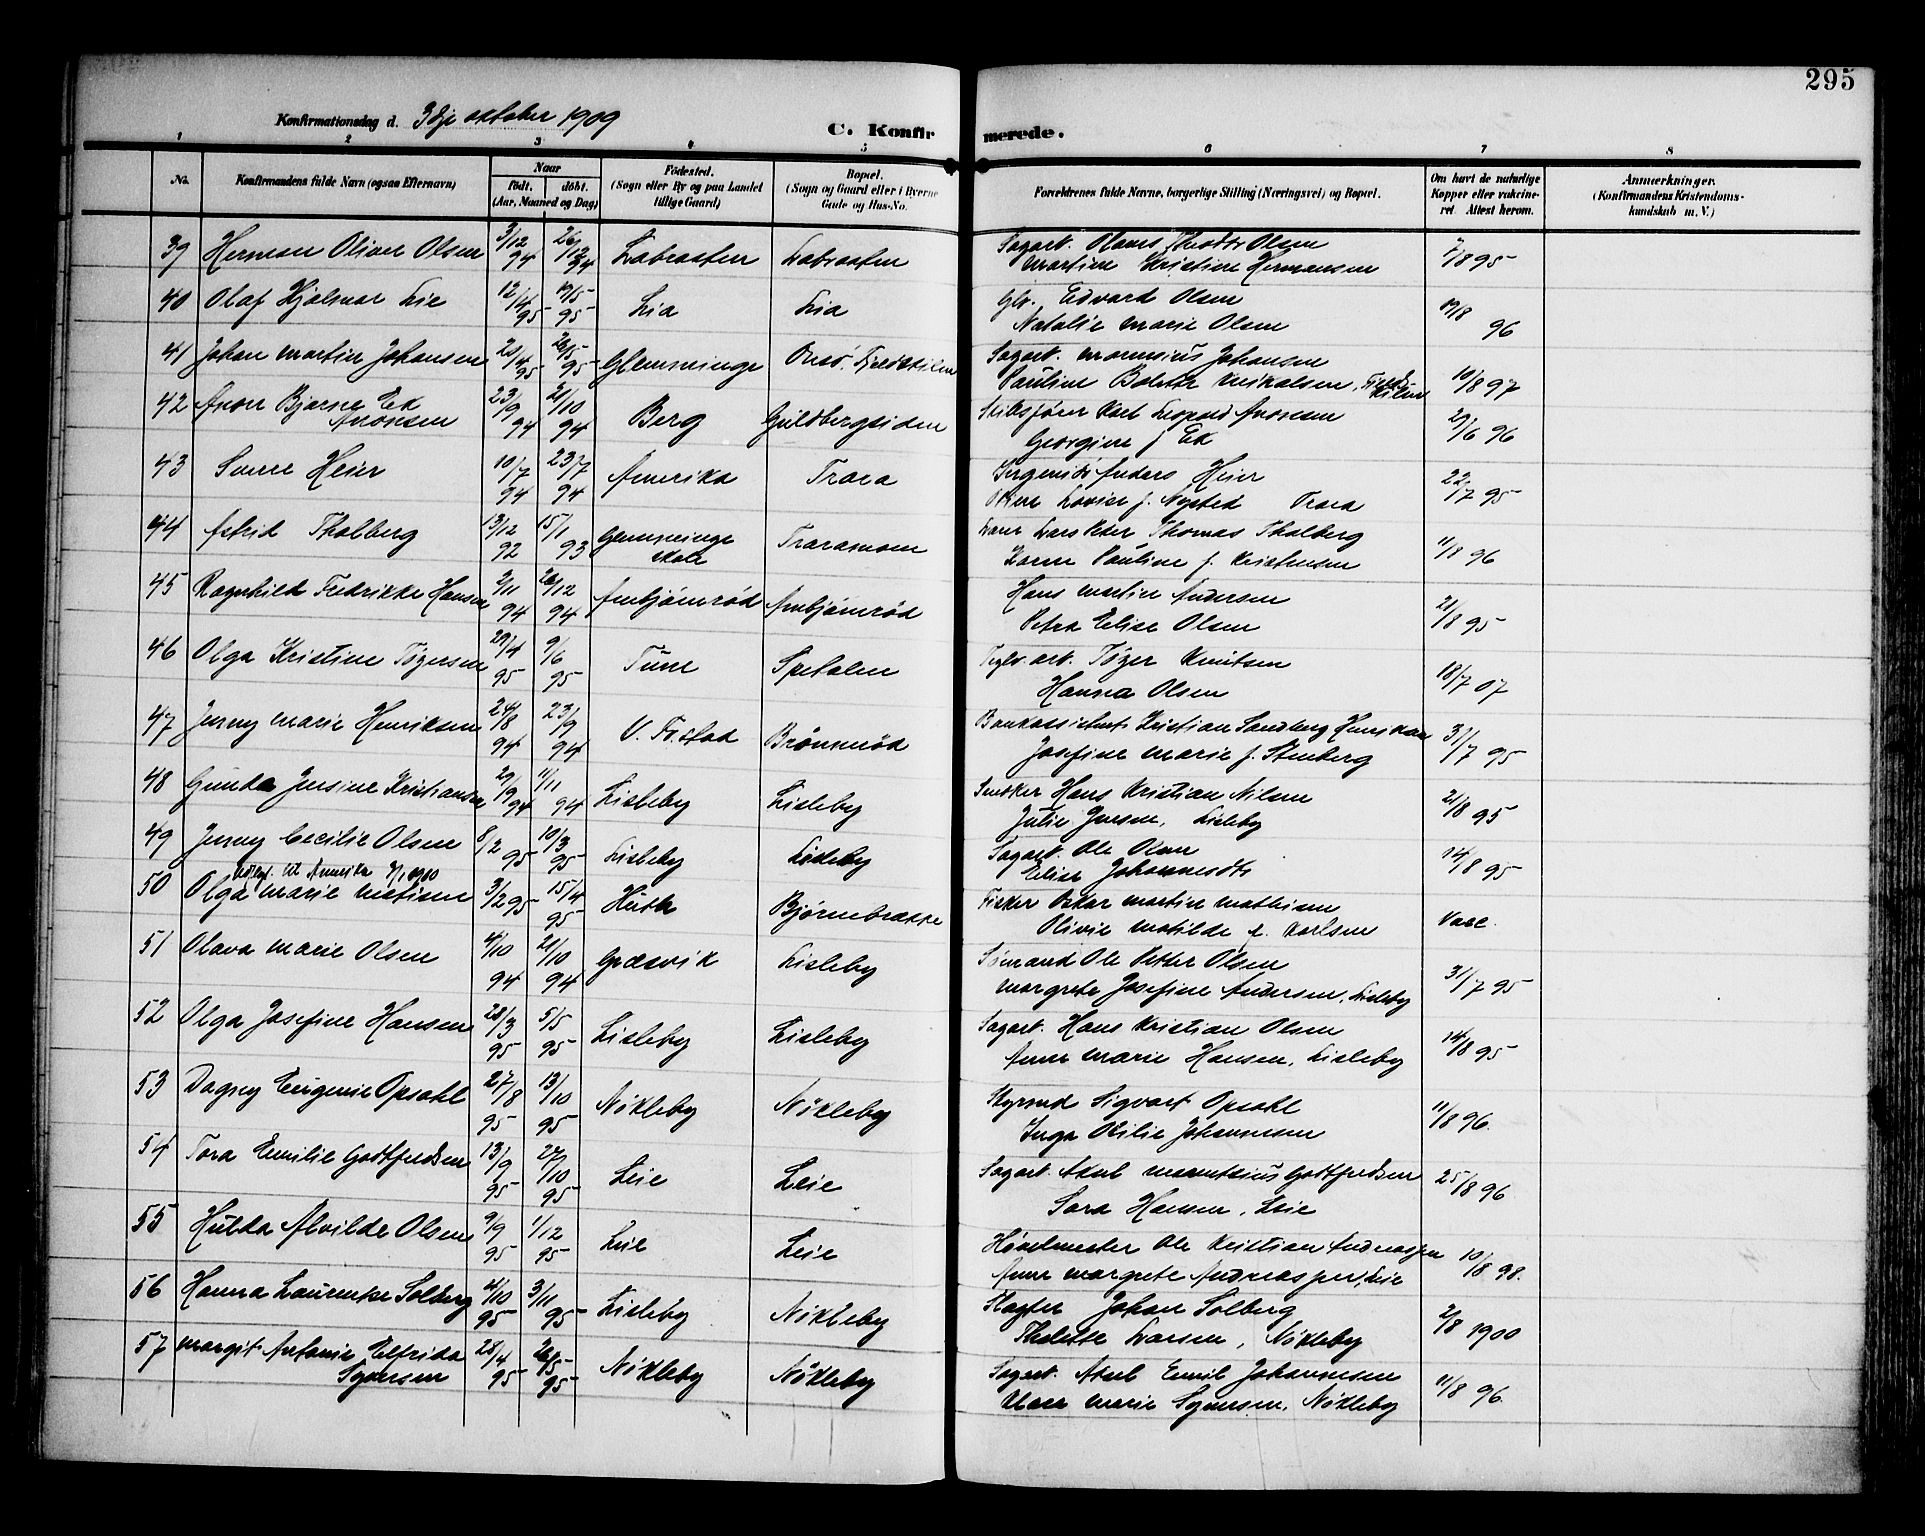 295
Konfirmationsdag d. 3dje oktober 1909
C. Konfirmerede.
1 2 3 4 5 6 7 8
No.
Konfirmandens fulde Navn (ogsaa Efternavn)
Naar
födt. döbt.
(Aar, Maaned og Dag)
Födested.
(Sogn eller By og paa Landet
tillige Gaard)
Bopæl.
(Sogn og Gaard eller i Byerne
Gade og Hus-No.
Forældrenes fulde Navne, borgerlige Stilling (Næringsvei) og Bopæl.
Om havt de naturlige
Kopper eller vakcine-
ret. Attest herom.
Anmærkninger.
(Konfirmandens Kristendoms-
kundskab m. V.)
39 Herman Oliver Olsen 3/12 94 26/12 94 Labraaten Labraaten Sagarb. Hans Theodor Olsen 7/8 95
Martine Kristine Hermansen
40 Olaf Hjalmar Lie 12/4 95 19/5 95 Lia Lia Edvard Olsen 19/8 96
Natalie Marie Olsen
41 Johan Martin Johansen 95 26/5 95 Glemminge Onsö, Sagarb. Johansen 10/8 97
Pauline
42 Bjarne Ek 23/9 94 21/10 94 Berg Guldbergsiden Karl Leopold 29/6 96
Aronsen Georgine f. Ek
43 Sverre Heier 10/7 94 23/7 94 Amerika Trara Anders Heier 22/7 95
Lovise f. Nysted Trara
44 Astrid Tholberg 13/12 92 15/1 93 Glemminge Traramoen Lars Peter Thomas Tholberg 11/8 96
Pauline f. Kristensen
45 Ragnhild Fredrikke Hansen 2/11 94 26/12 94 Ambjörnröd Ambjörnröd Hans Martin Andersen 21/8 95
Petra Elise Olsen
46 Olga Kristine Tögersen 29/4 95 9/6 95 Tune Spetalen Teglv. arb. Töger Knutsen 18/7 07
Hanna Olsen
47 Jenny Marie Henriksen 24/8 94 23/9 94 V. Fr.stad Brönneröd Bankassistent Kristian Sandberg Henriksen 31/7 95
Josefine Marie f. Stenberg
48 Gunda Jensine Kristiansen 29/9 94 11/11 94 Lisleby Lisleby Snekker Hans Kristian Nilsen 21/8 95
Julie Jensen, Lisleby
49 Jenny Cecilie Olsen 8/2 95 10/3 95 Lisleby Lisleby Sagarb. Ole Olsen 14/8 95
Elise Johannesdt.
til Amerika 1910
50 Olga Marie Matisen 3/2 95 15/4 95 Björnebrække Fisker Oskar Martin Mathisen Vacc.
Olivie Matilde f. Karlsen
51 Olava Marie Olsen 4/10 94 21/10 94 Græsvik Lisleby Sömand Ole Petter Olsen 31/7 95
Margrete Josefine Andersen, Lisleby
52 Olga Josefine Hansen 28/3 95 5/5 95 Lisleby Lisleby Sagarb. Hans Kristian Olsen 14/8 95
Anne Marie Hansen, Lisleby
53 Dagny Eugenie Opsahl 27/8 95 13/10 95 Nökleby Nökleby Styrmd Sigvart Opsahl 11/8 96.
Inga Otilie Johannesen
54 Tora Emilie Godtfredsen 13/9 95 27/10 95 Leie Leie Sagarb. Axel Godtfredsen 25/8 96
Sara Hansen, Leie
55 Hulda Alvilde Olsen 9/9 95 1/12 95 Leie Leie Hövelmester Ole Kristian Andreassen 10/8 98.
Anne Margrete Leie
56 Hanna Laurentse Solberg 4/10 95 3/11 95 Lisleby Nökleby Slagter Johan Solberg 2/8 1900
Larsen, Nökleby
57 Margit Antonie Elfrida 25/4 95 26/5 95 Nökleby Nökleby Sagarb. Axel Emil Johannesen 11/8 96.
Syversen Marie Syversen, Nökleby